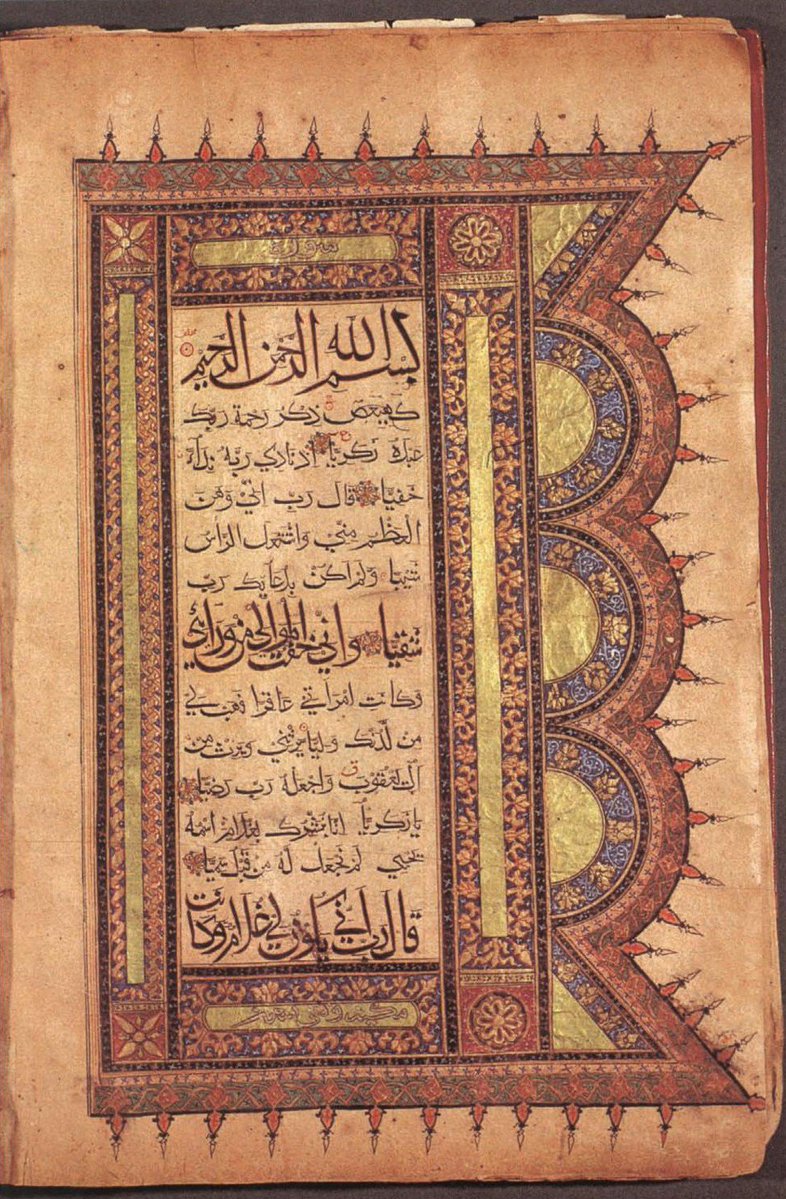 بسم الله الرحمن الرحيم
كهيعص ذكر رحمة ربك
عبده زكريا اذ نادى ربه نداء
خفيا قال رب اني وهن
العظم مني واشتعل الراس
شيبا ولم اكن بدعائك رب
شقيا واني خفت الموالي من ورائي
وكانت امراتي عاقرا فهب لي
من لدنك وليا يرثني ويرث من
ال يعقوب واجعله رب رضيا
يا زكريا انا نبشرك بغلام اسمه
يحيى لم نجعل له من قبل سميا
قال رب انى يكون لي غلام وكانت